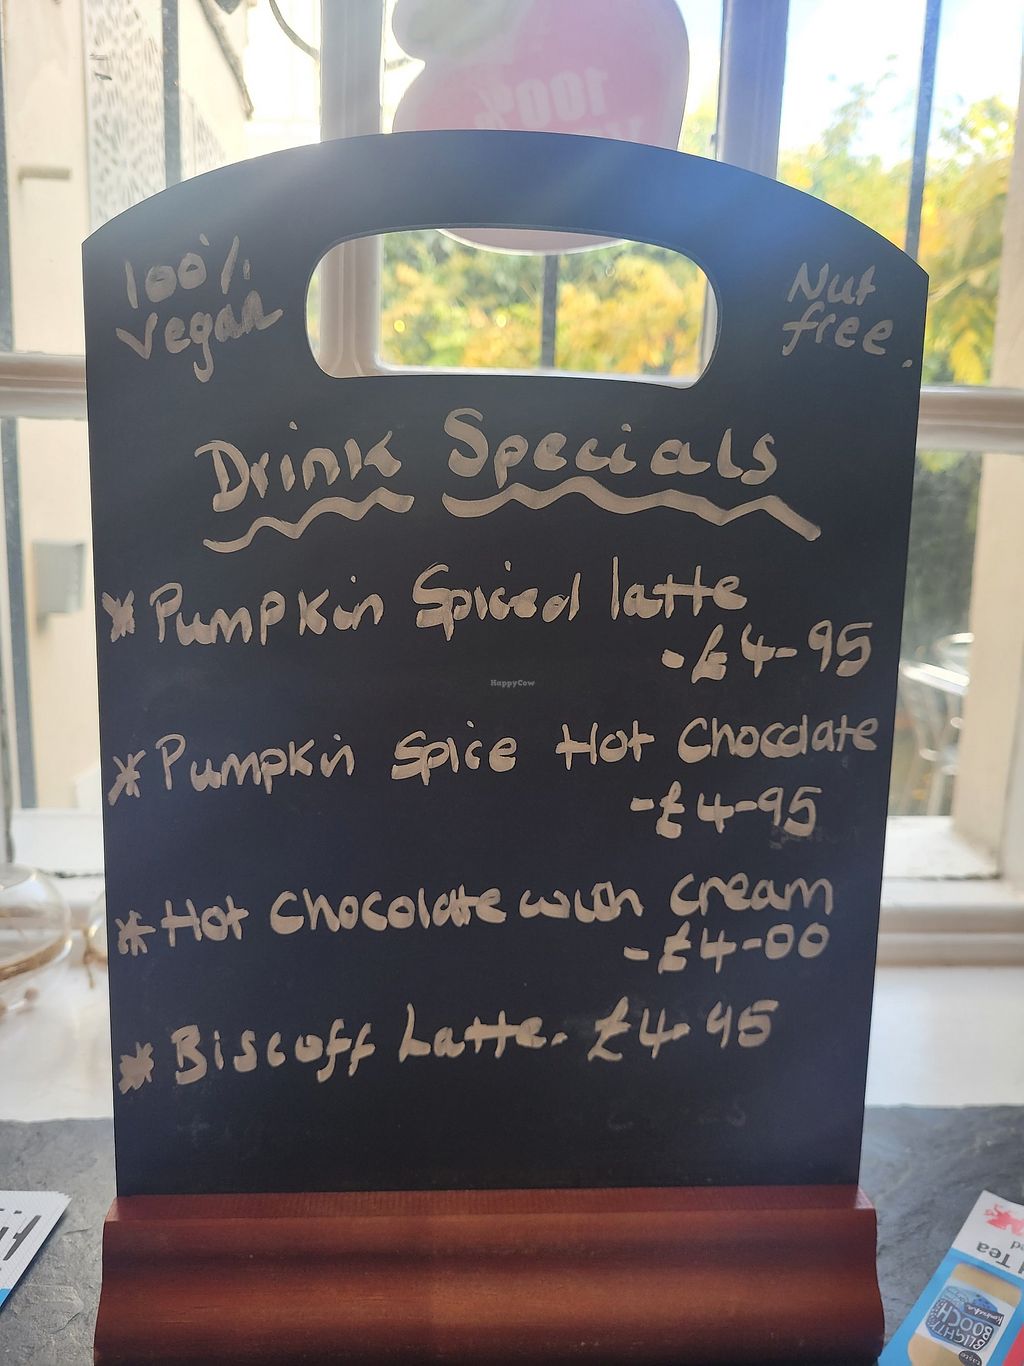 100%
100%
vegan
Nut
free.
Drink Specials
* Pumpkin Spiced latte
- £4-95
HappyCow
* Pumpkin Spice Hot Chocolate
- £4-95
* Hot Chocolate with cream
- £4-00
* Biscoff Latte. £4-95
Tea
BLIGHTY
BOOCH
Kombucha